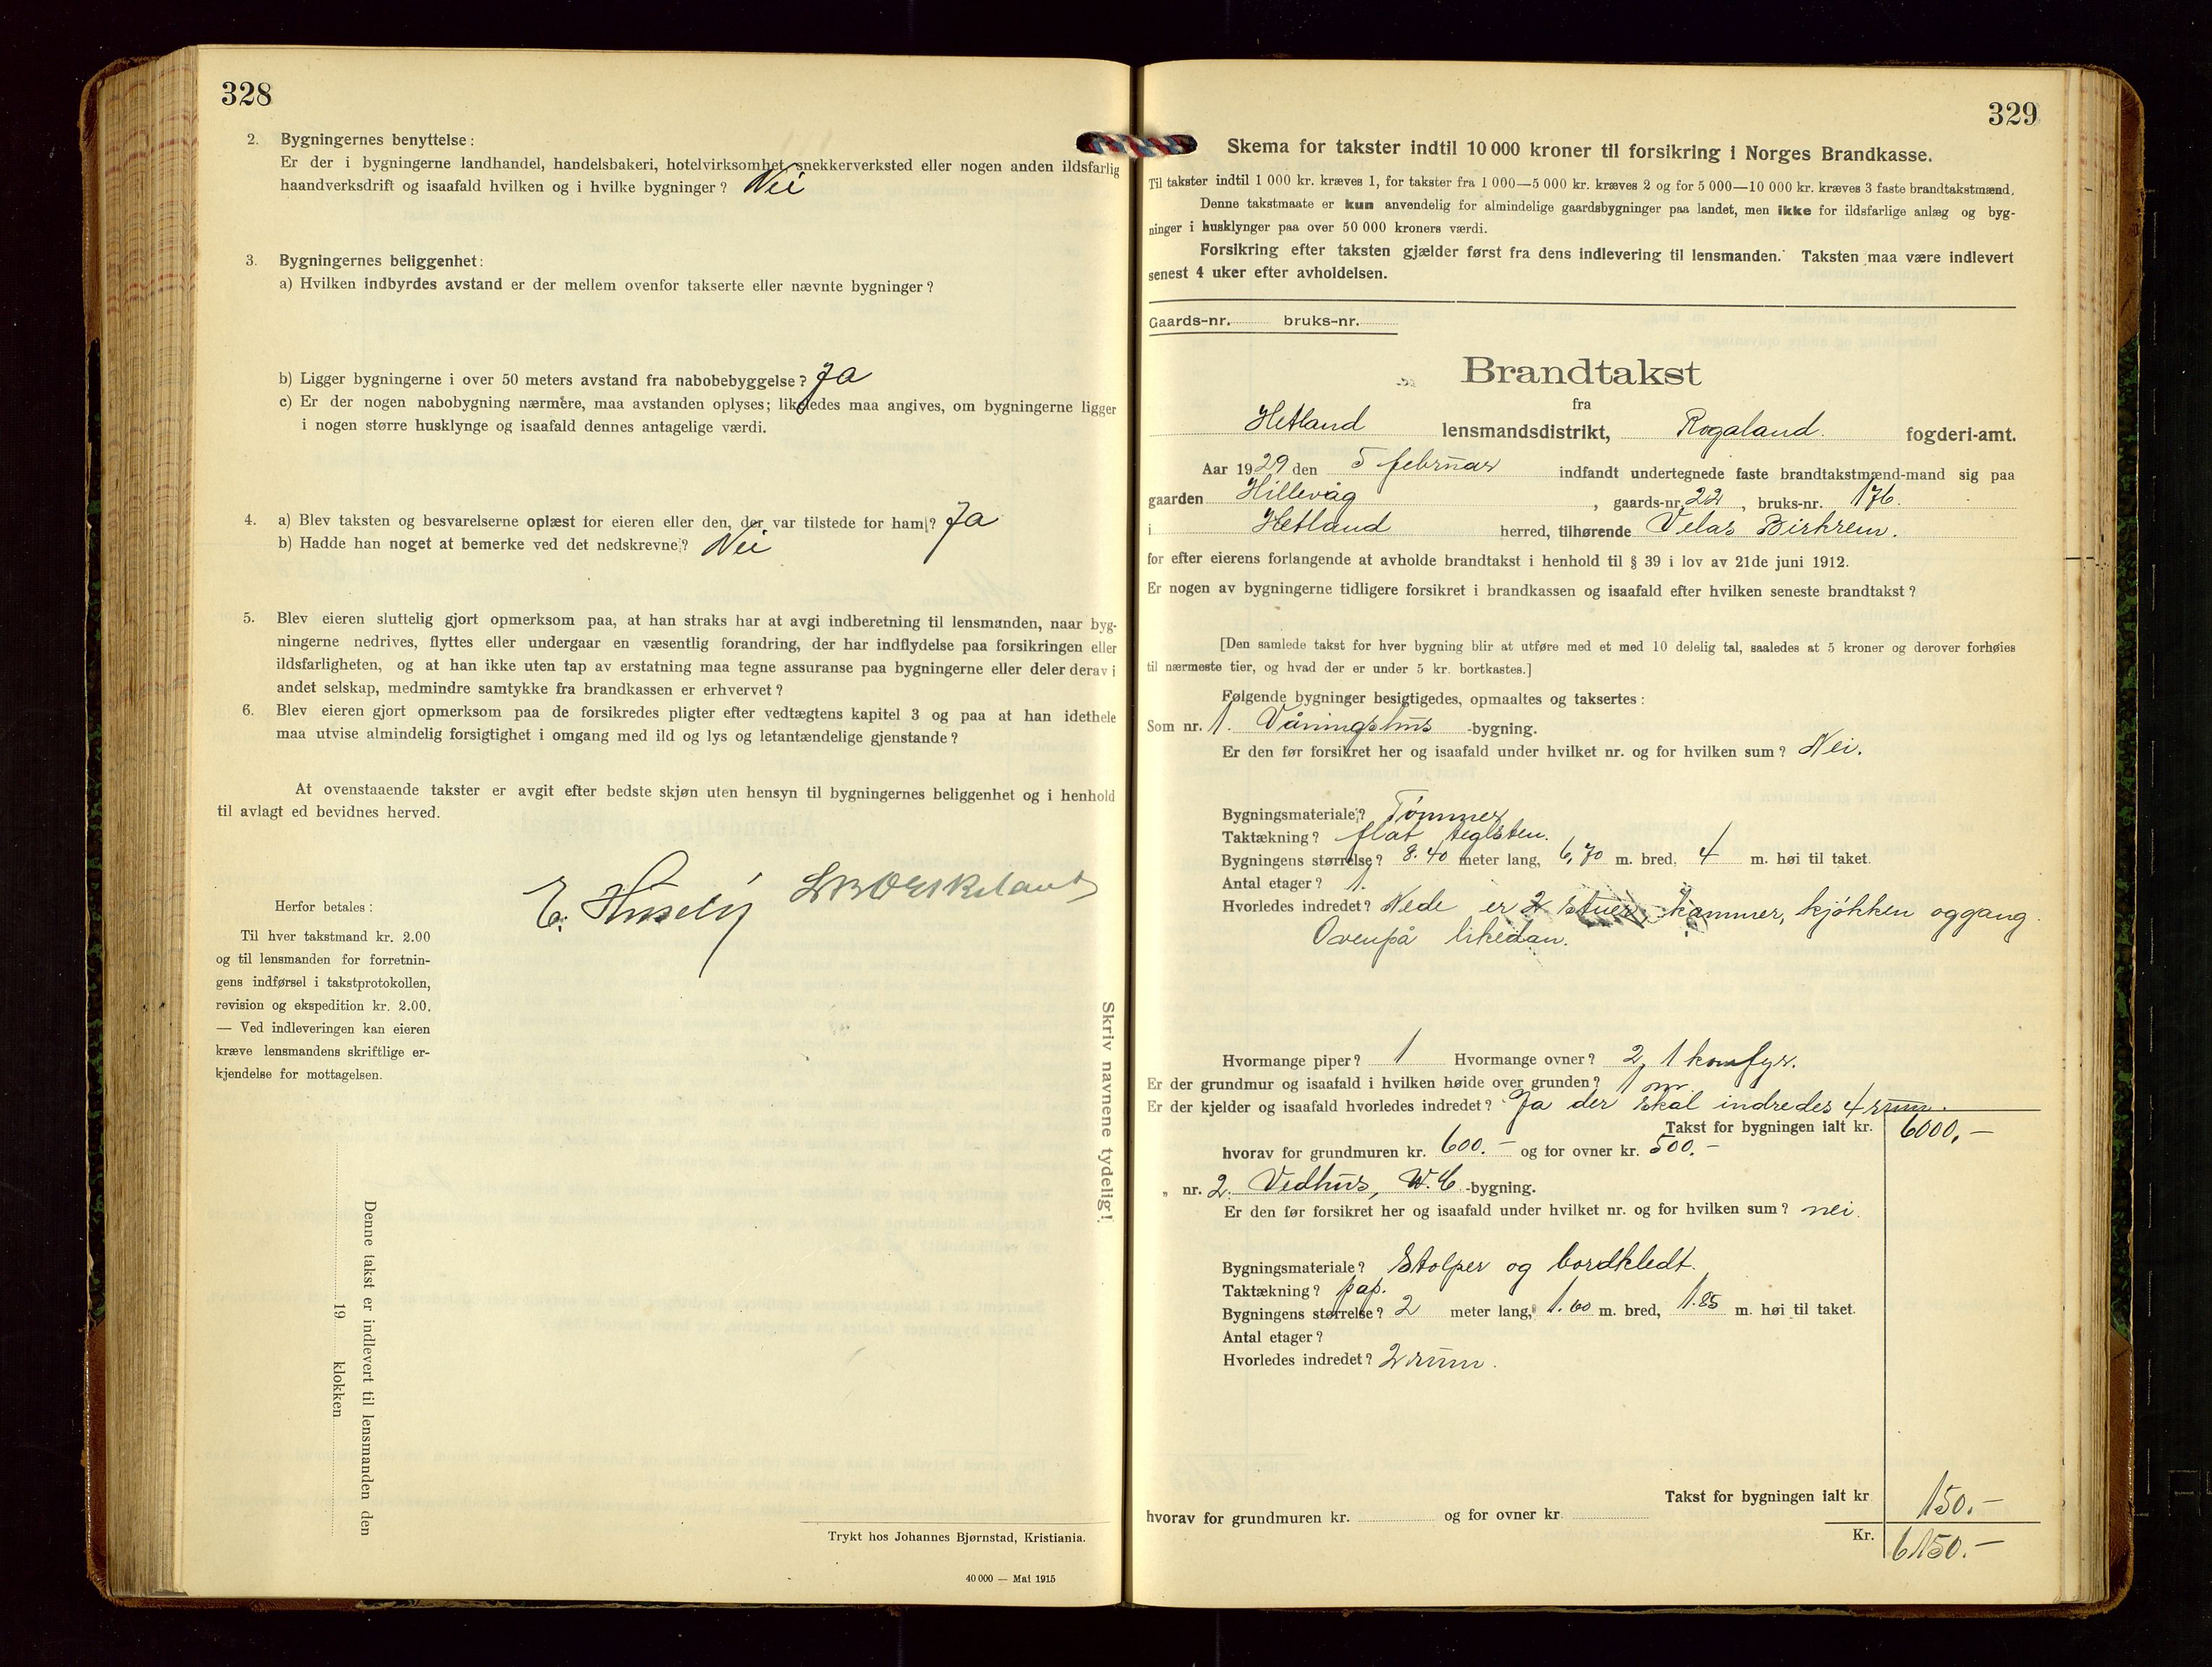 328
2. Bygningernes benyttelse:
Er der i bygningerne landhandel, handelsbakeri, hotelvirksomhet, snekkerverksted eller nogen anden ildsfarlig
haandverksdrift og isaafald hvilken og i hvilke bygninger? Nei
3. Bygningernes beliggenhet:
a) Hvilken indbyrdes avstand er der mellem ovenfor takserte eller nævnte bygninger?
b) Ligger bygningerne i over 50 meters avstand fra nabobebyggelse? Ja
c) Er der nogen nabobygning nærmere, maa avstanden oplyses; likeledes maa angives, om bygningerne ligger
i nogen større husklynge og isaafald dennes antagelige værdi.
4. a) Blev taksten og besvarelserne oplæst for eieren eller den, der var tilstede for ham? Ja
b) Hadde han noget at bemerke ved det nedskrevne? Nei
5. Blev eieren sluttelig gjort opmerksom paa, at han straks har at avgi indberetning til lensmanden, naar byg-
ningerne nedrives, flyttes eller undergaar en væsentlig forandring, der har indflydelse paa forsikringen eller
ildsfarligheten, og at han ikke uten tap av erstatning maa tegne assuranse paa bygningerne eller deler derav i
andet selskap, medmindre samtykke fra brandkassen er erhvervet?
6. Blev eieren gjort opmerksom paa de forsikredes pligter efter vedtægtens kapitel 3 og paa at han idethele
maa utvise almindelig forsigtighet i omgang med ild og lys og letantændelige gjenstande?
At ovenstaaende takster er avgit efter bedste skjøn uten hensyn til bygningernes beliggenhet og i henhold
til avlagt ed bevidnes herved.
E. Huseby
Herfor betales:
Til hver takstmand kr. 2.00
og til lensmanden for forretnin-
gens indførsel i takstprotokollen,
revision og ekspedition kr. 2.00.
— Ved indleveringen kan eieren
kræve lensmandens skriftlige er-
kjendelse for mottagelsen.
Skriv navnene tydelig!
Denne takst er indlevert til lensmanden den
19 klokken
Trykt hos Johannes Bjørnstad, Kristiania.
40 000 — Mai 1915
329
Skema for takster indtil 10 000 kroner til forsikring i Norges Brandkasse.
Til takster indtil 1 000 kr. kræves 1, for takster fra 1 000—5 000 kr. kræves 2 og for 5 000—10 000 kr. kræves 3 faste brandtakstmænd.
Denne takstmaate er kun anvendelig for almindelige gaardsbygninger paa landet, men ikke for ildsfarlige anlæg og byg-
ninger i husklynger paa over 50 000 kroners værdi.
Forsikring efter taksten gjælder først fra dens indlevering til lensmanden. Taksten maa være indlevert
senest 4 uker efter avholdelsen.
Gaards-nr. bruks-nr.
Brandtakst
fra
Hetland lensmandsdistrikt, Rogaland. fogderi-amt.
Aar 1929 den 5 februar indfandt undertegnede faste brandtakstmænd-mand sig paa
gaarden Hillevåg, gaards-nr. 22, bruks-nr. 176.
i Hetland herred, tilhørende Velas Birkrem.
for efter eierens forlangende at avholde brandtakst i henhold til § 39 i lov av 21de juni 1912.
Er nogen av bygningerne tidligere forsikret i brandkassen og isaafald efter hvilken seneste brandtakst?
[Den samlede takst for hver bygning blir at utføre med et med 10 delelig tal, saaledes at 5 kroner og derover forhøies
til nærmeste tier, og hvad der er under 5 kr. bortkastes.]
Følgende bygninger besigtigedes, opmaaltes og taksertes:
Som nr. 1. Våningshus -bygning.
Er den før forsikret her og isaafald under hvilket nr. og for hvilken sum? Nei.
Bygningsmateriale? Tømmer
Taktækning? flat teglsten.
Bygningens størrelse? 8.40 meter lang, 6,70 m. bred, 4 m. høi til taket.
Antal etager? 1.
Hvorledes indredet? Nede er 2 stuer, kammer, kjøkken og gang.
Ovenpå likedan.
Hvormange piper? 1 Hvormange ovner? 2, 1 komfyr.
Er der grundmur og isaafald i hvilken høide over grunden? 1 m.
Er der kjelder og isaafald hvorledes indredet? Ja der skal indredes 4 rum.
Takst for bygningen ialt kr. 6000,-
hvorav for grundmuren kr. 600.- og for ovner kr. 500.-
„ nr. 2. Vedhus, W.C. -bygning.
Er den før forsikret her og isaafald under hvilket nr. og for hvilken sum? nei.
Bygningsmateriale? Stolper og bordkledt.
Taktækning? pap.
Bygningens størrelse? 2 meter lang, 1.60 m. bred, 1.85 m. høi til taket.
Antal etager?
Hvorledes indredet? 2 rum.
Takst for bygningen ialt kr 150.-
hvorav for grundmuren kr. og for ovner kr.
Kr. 6150.-